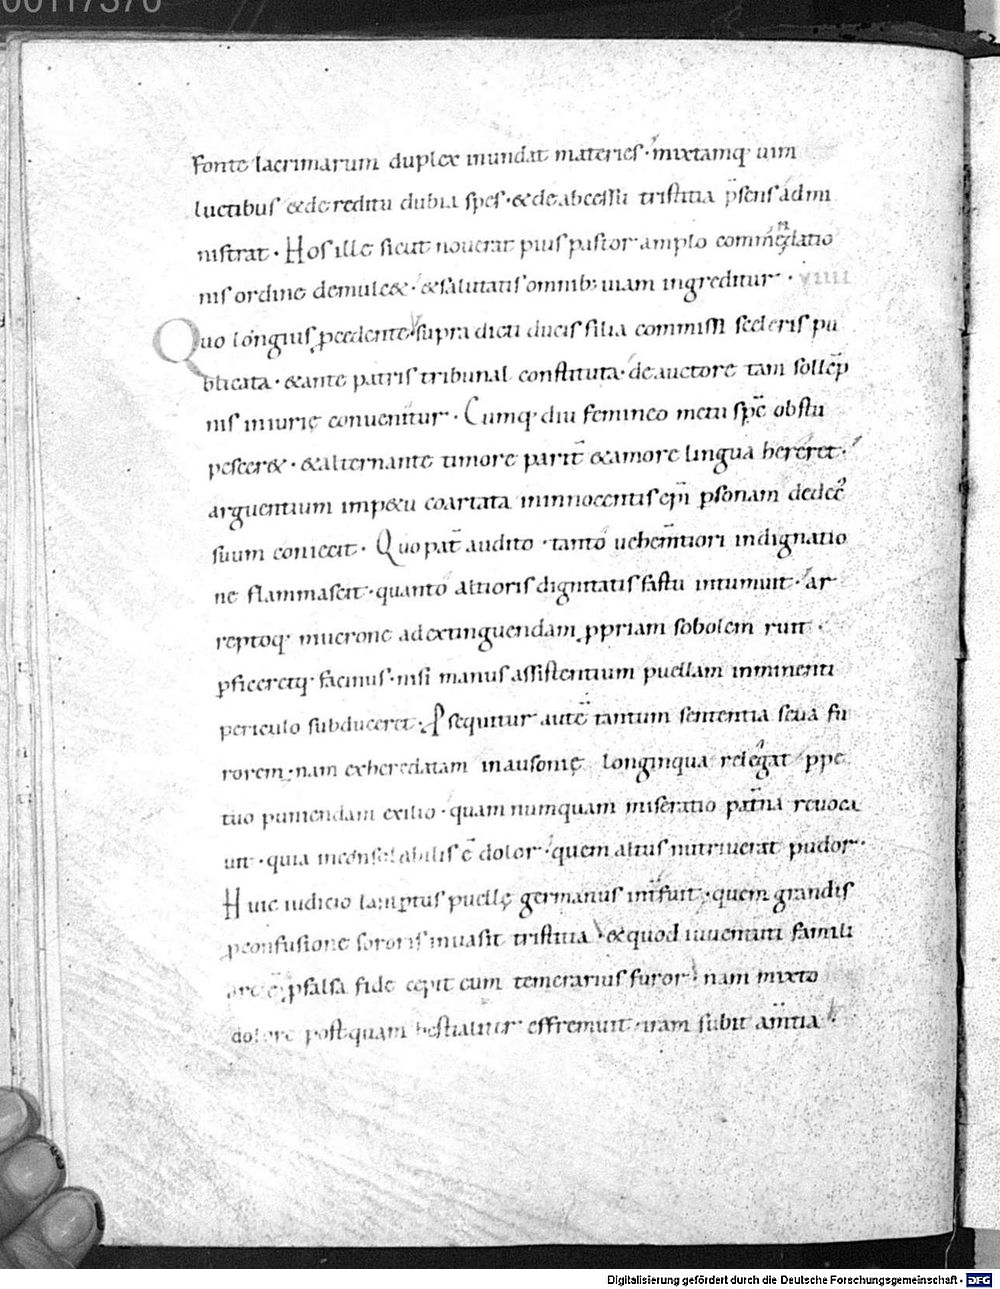 00117370
fonte lacrimarum duplex inundat materies · mixtamq; uim
luctibus & de reditu dubia spes · & de abcessu tristitia p̄sens ádmi
nistrat · Hos ille sicut nouerat pius pastor amplo commendatio
nis ordine demulc& · & salutatis omnib; uiam ingreditur · VIIII
Quo longius ꝓcedente · supra dicti ducis filia commissi sceleris pu
blicata · & ante patris tribunal constituta · de auctore tam sollep̄
nis iniurię conuenitur · Cumq; diu femineo metu sp̄e obstu
pescer& · & alternante timore parit̄ & amore lingua hereret ·
arguentium imp&u coartata in innocentis ep̄i ꝑsonam dedec̄
suum coniecit · Quo pat̄ audito · tantó uehem̄tiori indignatio
ne flammascit · quanto altioris dignitatis fastu intumuit · ar
reptoq; mucrone ad extinguendam ꝓpriam sobolem ruit ·
ꝑficeretq; facinus · nisi manus assistentium puellam inminenti
periculo subduceret · Psequitur autē tantum sententia seua fu
rorem · nam exheredatam in ausonię longinqua relegat ꝑpe
tuo puniendam exilio · quam numquam miseratio pat̄na reuoca
uit · quia inconsolabilis ē dolor · quem altus nutriuerat pudor ·
Huic iudicio puellę germanus int̄fuit · quem grandis
ꝓ confusione sororis inuasit tristitia · & quod iuuentuti famili
are ē ꝑ falsa fide cepit eum temerarius furor · nam mixto
dolore postquam bestialiter effremuit · iram subit am̄tia ·
Digitalisierung gefördert durch die Deutsche Forschungsgemeinschaft - DFG